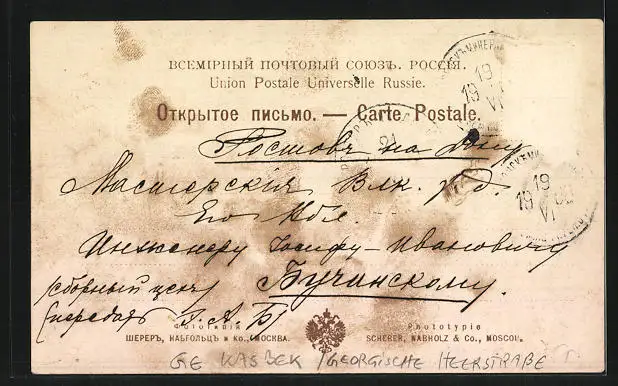 ВСЕМІРНЫЙ ПОЧТОВЫЙ СОЮЗЪ. РОССІЯ.
Union Postale Universelle Russie.
Открытое письмо. — Carte Postale.
19
19 VI
21
Ростовъ на Дону
Мастерскія Влк. ж. д.
19
19 VI
Его Вбл.
Инженеру Іосифу-Ивановичу
Бучинскому.
(сборный цехъ)
(передать Г. А. Б)
Фототипія
ШЕРЕРЪ, НАБГОЛЬЦЪ и Ко., МОСКВА.
Phototypie
SCHERER, NABHOLZ & Co., MOSCOU.
GE KASBEK / GEORGISCHE HEERSTRAßE